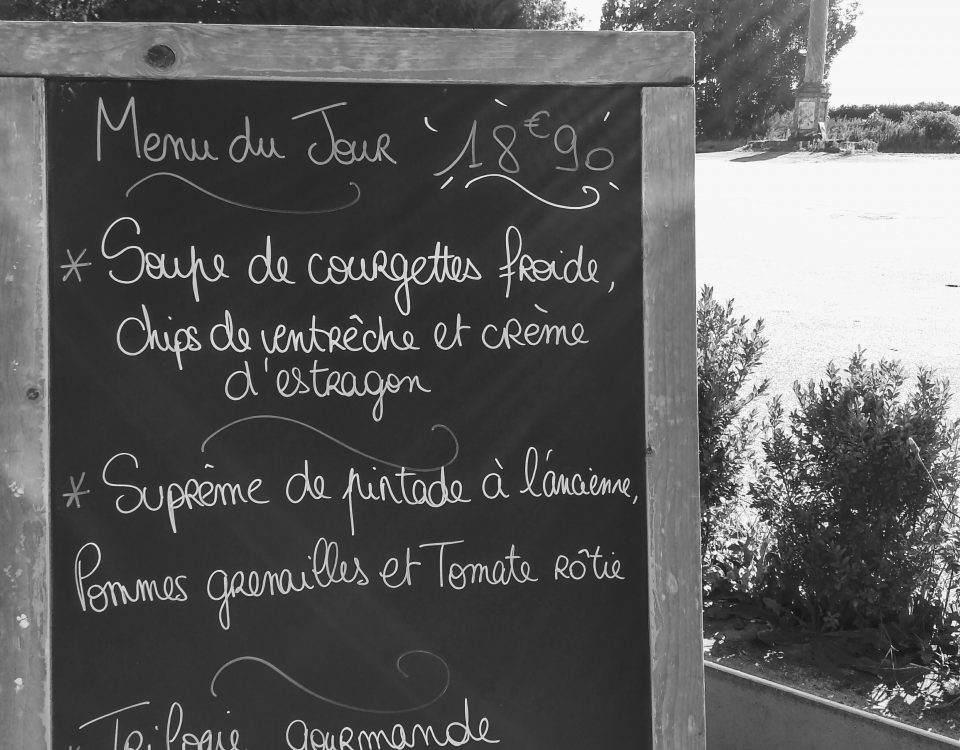 Menu du Jour 18€90
* Soupe de courgettes froide,
chips de ventrêche et crème
d'estragon
* Suprême de pintade à l'ancienne,
Pommes grenailles et Tomate rôtie
* Trilogie gourmande